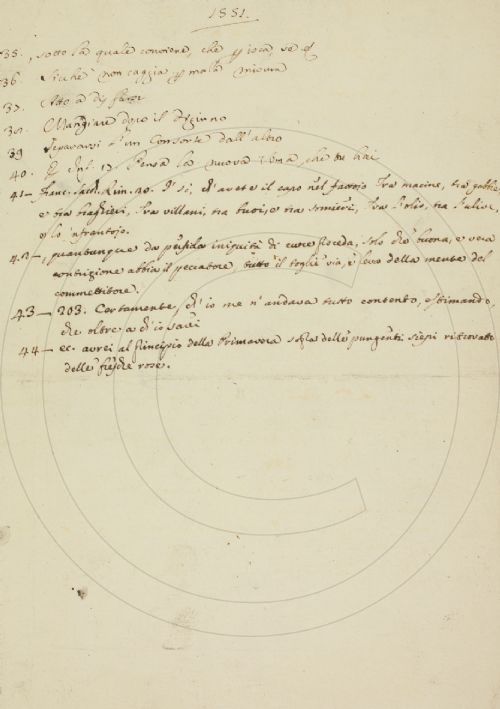 1551.
35. , sotto la quale conviene, che
36. Sicchè non caggia p mala misura
37. Atto a
38. Mangiare dopo il digiuno
39 Separarsi d'un Consorte dall'altro
40. Inf. 17 Pensa la nuova soma che tu hai
41 — Franc. Sacch. Rim. 40. avete il capo nel fattojo tra macine, tra gabbie
e tra traglieri, tra villani, tra buoi, e tra somieri, tra l'olio, tra l'ulive,
e lo 'nfrantojo.
42 — , quantunque da iniquità di cuore proceda, solo che buona, e vera
contrizione abbia il peccatore tutto il toglie via, e levo della mente del
commettitore.
43 — 203. Certamente, ch'io me n'andava tutto contento, estimando,
che oltre a
44 — ec. avrei al principio della Primavera delle pungenti siepi
delle fresche rose.